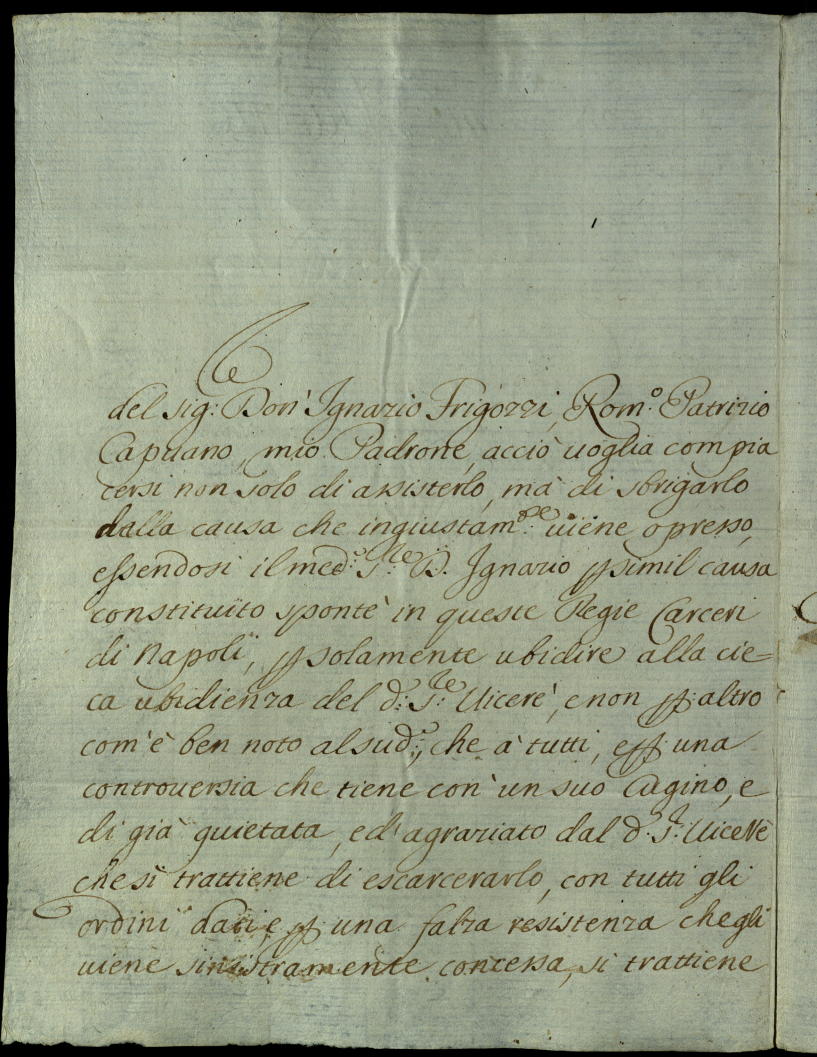 del sig: Don' Ignazio Frigozzi, Rom.º Patrizio
Capuano, mio Padrone, acciò uoglia compia
cersi non solo di assisterlo, mà di sbrigarlo
dalla causa che ingiustam.te uiene opresso,
essendosi il med.º S.re D. Ignazio p simil causa
constituito spontè in queste Regie Carceri
di Napoli, p solamente ubidire alla cie=
ca ubidienza del d.º S.re Uicerè, e non p altro
com'è ben noto al sud.º, che à tutti, e p una
controuersia che tiene con' un suo Cugino, e
di già quietata, ed' agraziato dal d.º S.r Uicerè
che si trattiene di escarcerarlo, con tutti gli
ordini dati, e p una falza resistenza che gli
uiene sinistramente concessa, si trattiene